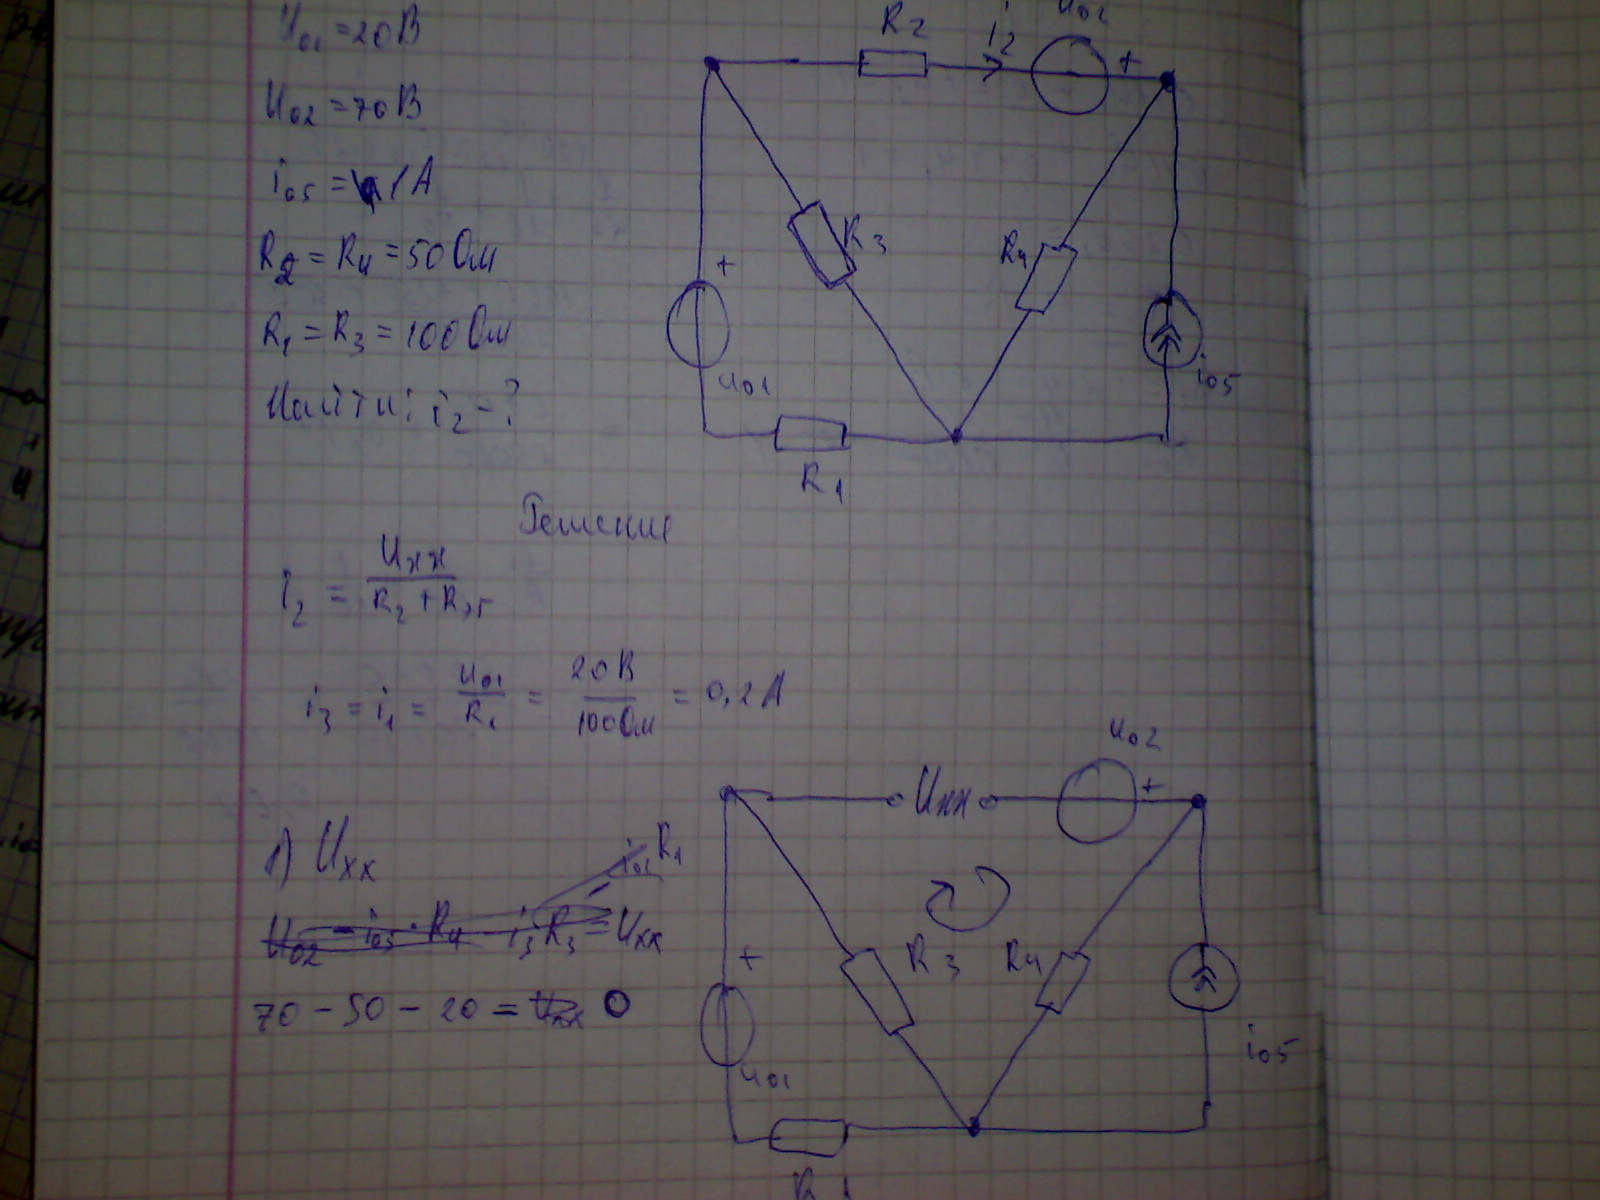 U01 = 20 В
U02 = 70 В
i05 = 1 А
R2 = R4 = 50 Ом
R1 = R3 = 100 Ом
Найти: i2 - ?
R2
i2
u02
+
R3
R4
+
u01
i05
R1
Решение
i2 = Uхх / (R2 + R
i3 = i1 = u01 / R1 = 20 В / 100 Ом = 0,2 А
u02
Uхх
+
1) Uхх
U02 - i05 · R4 - i3 R3 = Uхх
R1
70 - 50 - 20 = Uхх 0
+
R3
R4
u01
i05
R1